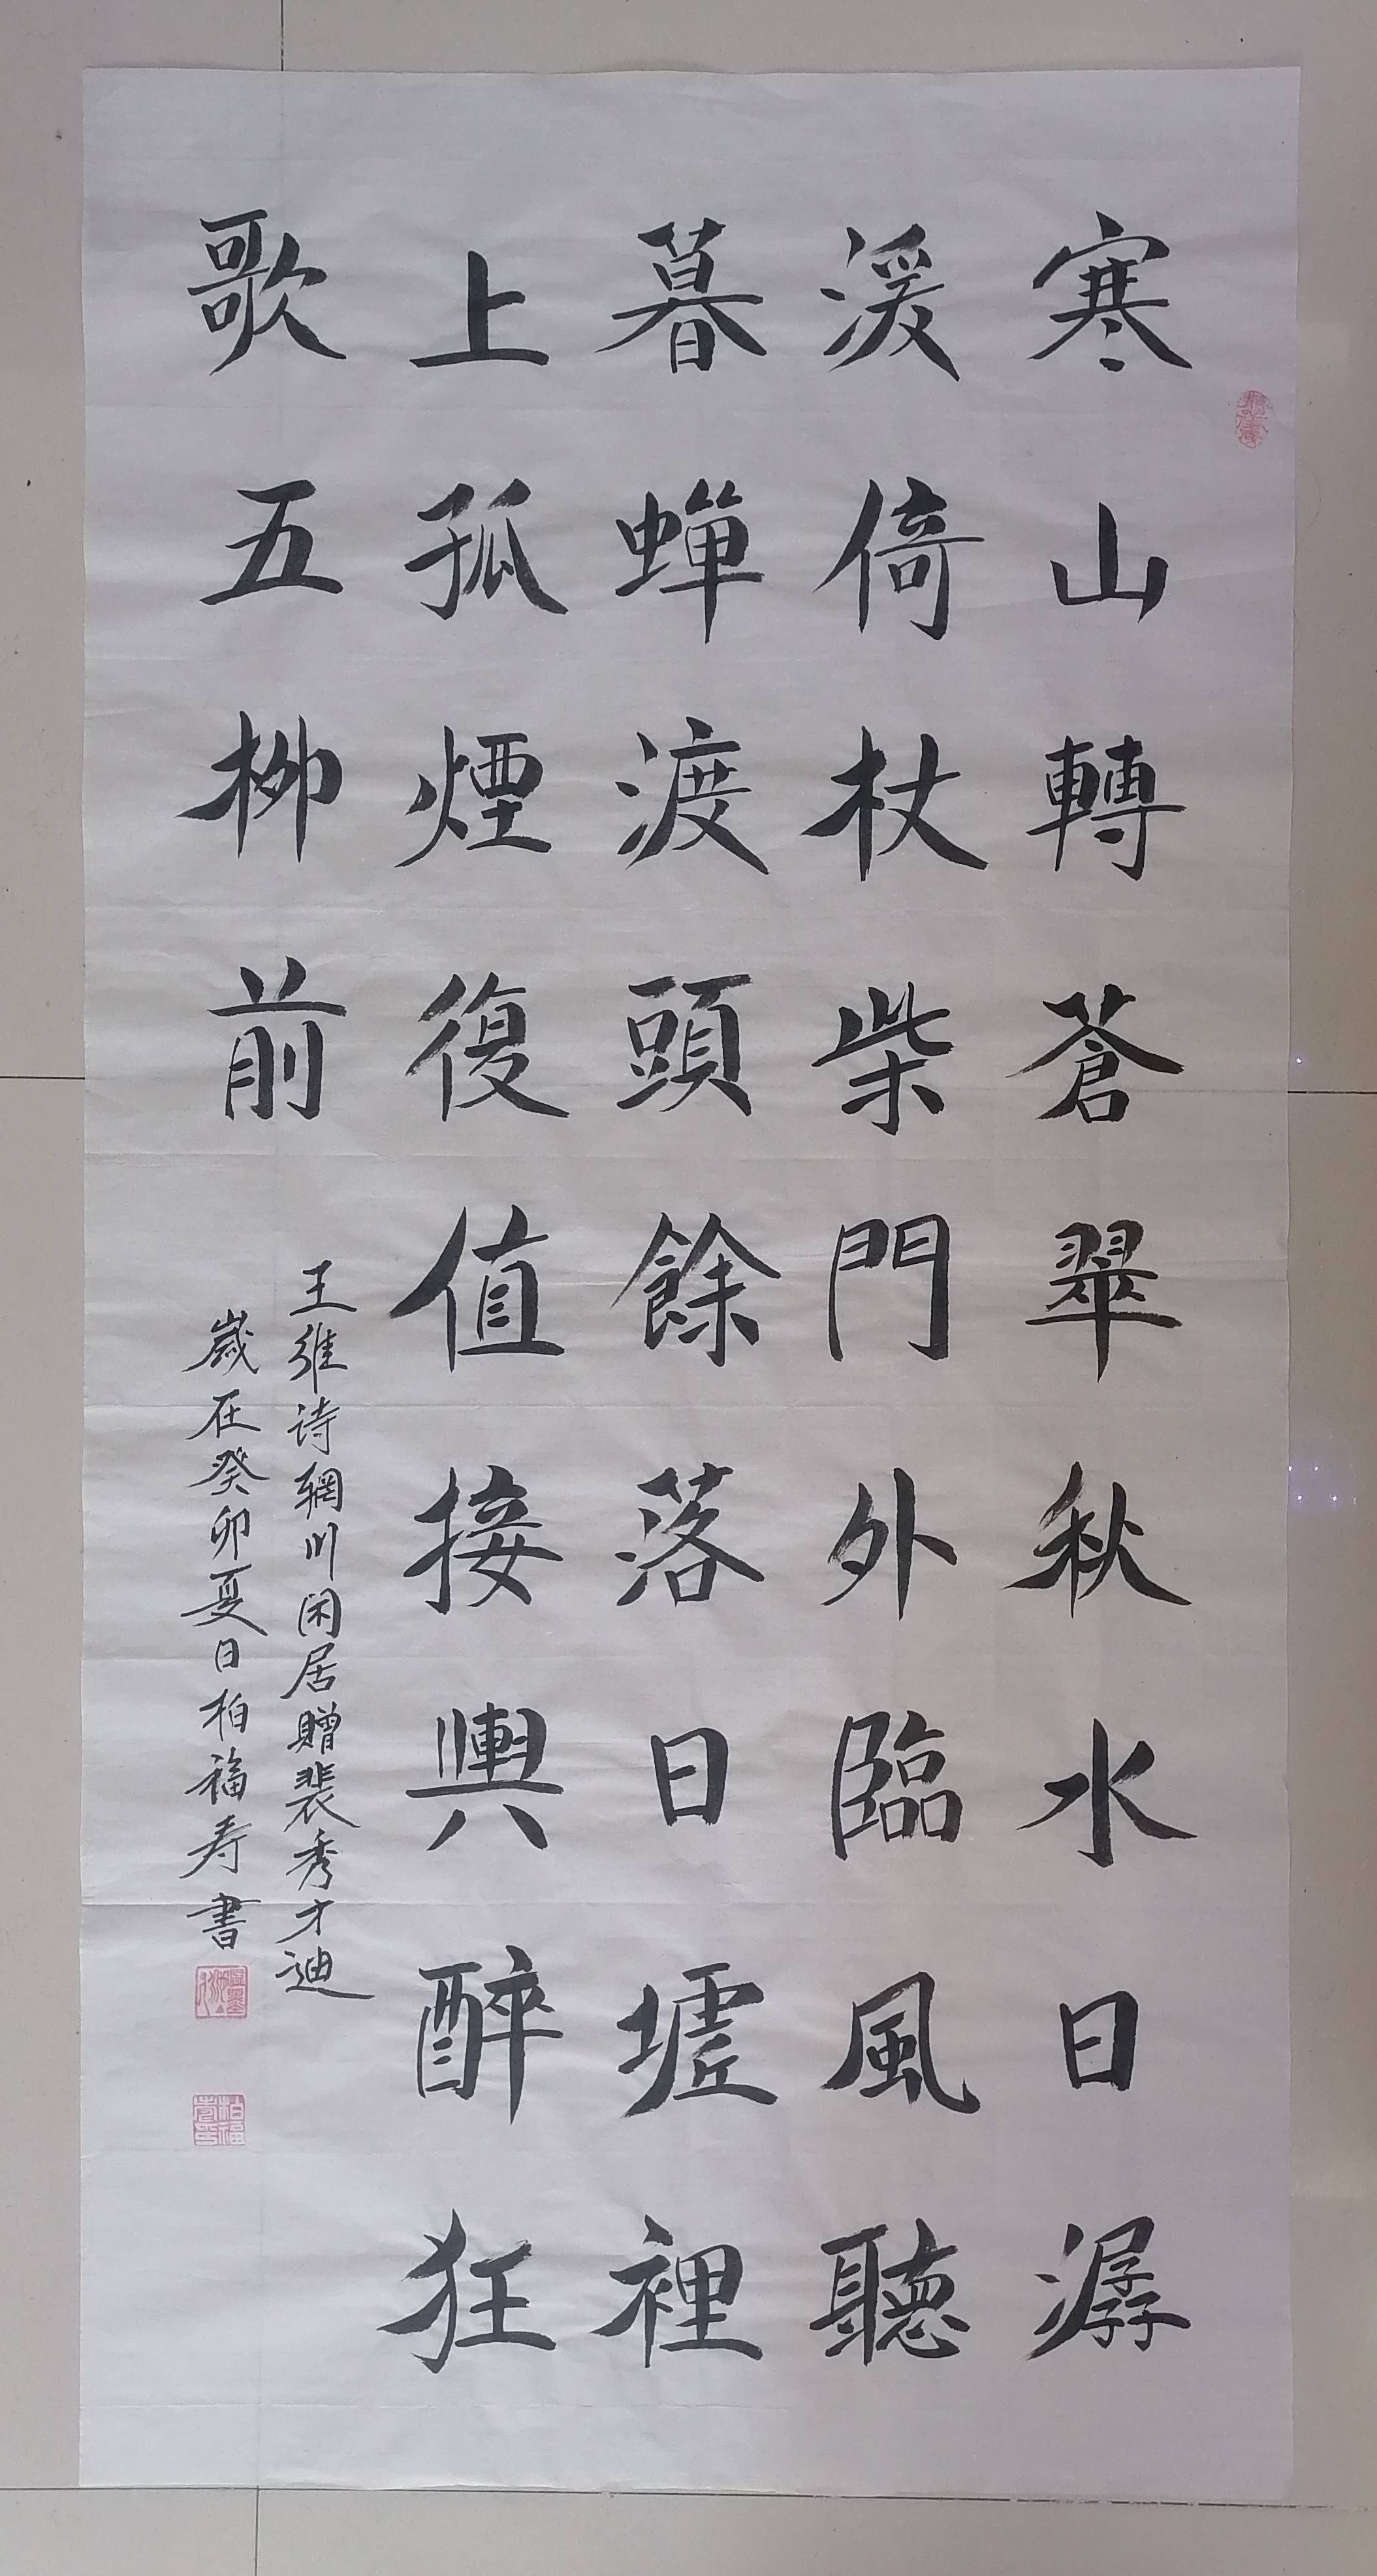 寒山轉蒼翠秋水日潺
湲倚杖柴門外臨風聽
暮蟬渡頭餘落日墟裡
上孤煙復值接輿醉狂
歌五柳前
王維诗辋川闲居贈裴秀才迪
歲在癸卯夏日柏福寿書